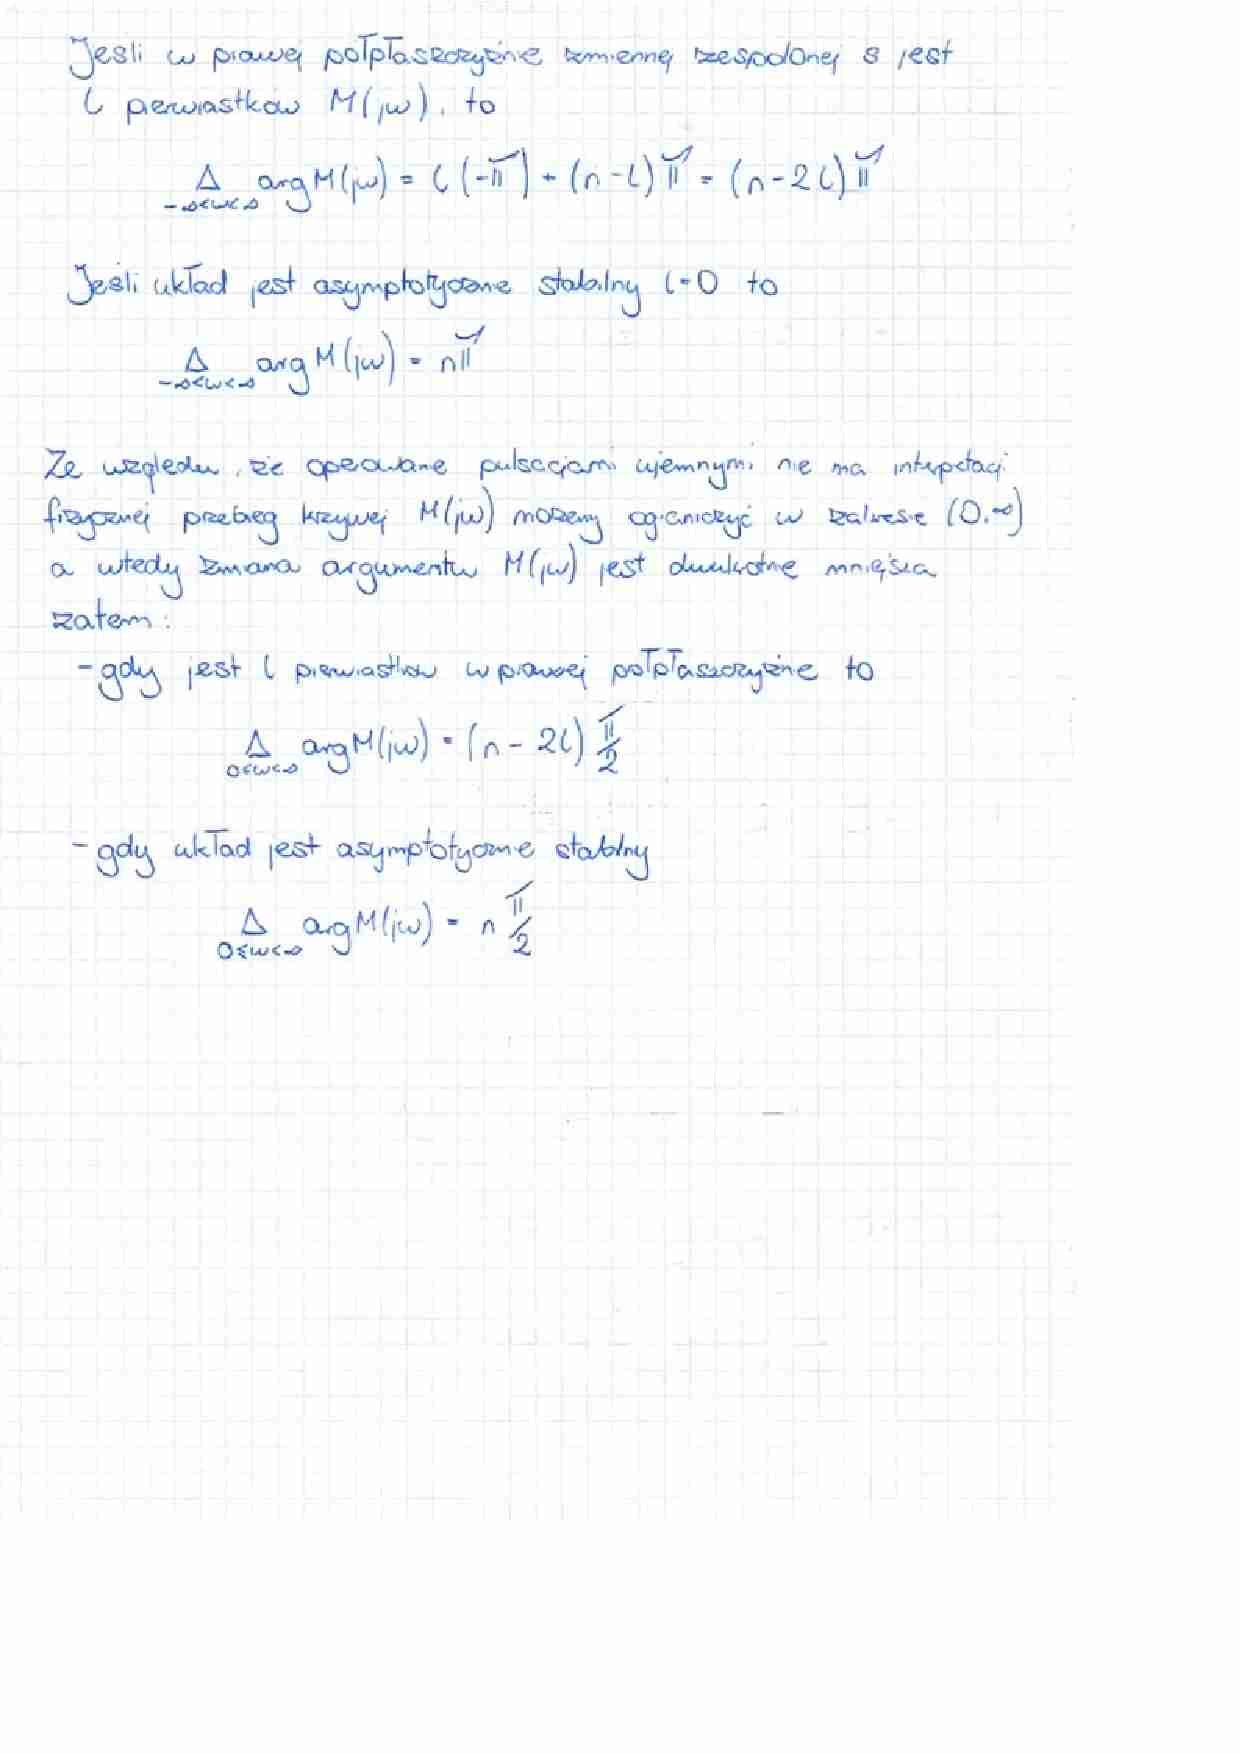 Jeśli w prawej półpłaszczyźnie zmiennej zespolonej s jest
l pierwiastków M(jω), to
Δ arg M(jω) = l(-π) + (n-l)π = (n-2l)π
-∞<ω<∞
Jeśli układ jest asymptotycznie stabilny l=0 to
Δ arg M(jω) = nπ
-∞<ω<∞
Ze względu, że operowanie pulsacjami ujemnymi nie ma interpretacji
fizycznej przebieg krzywej M(jω) możemy ograniczyć w zakresie (0,∞)
a wtedy zmiana argumentu M(jω) jest dwukrotnie mniejsza
zatem:
- gdy jest l pierwiastków w prawej półpłaszczyźnie to
Δ arg M(jω) = (n-2l) π/2
0≤ω<∞
- gdy układ jest asymptotycznie stabilny
Δ arg M(jω) = n π/2
0≤ω<∞